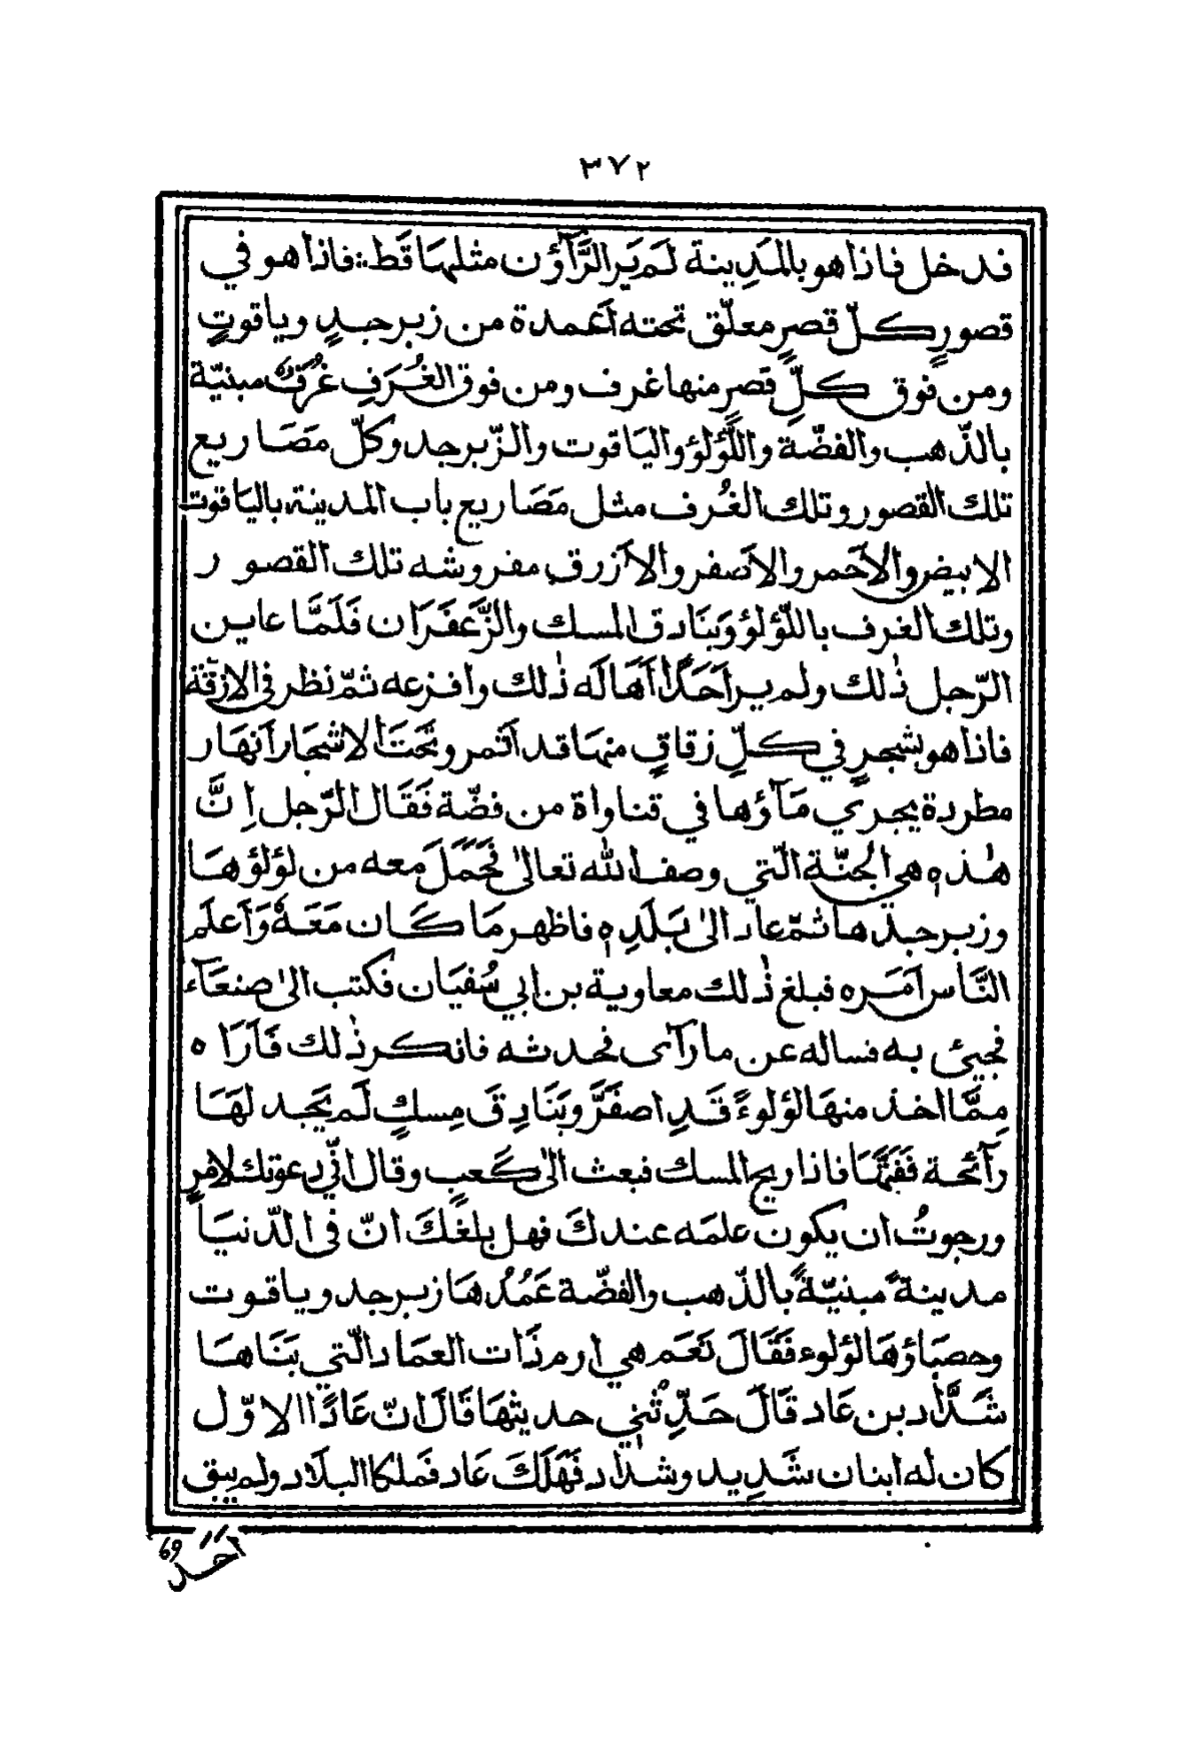 ٣٧٢
فدخل فاذا هو بالمَدِينة لَم يَر الرَّآؤن مثلهَا قَط :: فاذا هو في
قصورٍ كلّ قصرٍ معلّق تحته أعمدة من زبرجدٍ وياقوتٍ
ومن فوق كلِّ قصرٍ منها غرف ومن فوق الغُرَفِ غُرَفٌ مبنيّة
بالذّهب والفضّة واللّؤلؤ واليَاقوت والزّبرجد وكلّ مَصَاريع
تلك القصور وتلك الغُرف مثل مَصَاريع باب المدينة باليَاقوت
الابيض والأحمر والأصفر والأزرق مفروشه تلك القصور
وتلك الغرف باللّؤلؤ وَبَنَادق المسك والزَّعفَرَان فَلَمَّا عاين
الرّجل ذٰلك ولم ير احَدًا أهَالَه ذٰلك وافزعه ثمّ نظر في الازقّة
فاذا هو بشجرٍ في كلّ زقاقٍ منهَا قد أثمر وتحَتَ الاشجَار أنهَار
مطردة يجري مَآؤها في قناواة من فضّة فَقَال الرّجل إنَّ
هٰذهٖ هي الجنّة الّتي وصف الله تعالىٰ فحَمَلَ معه من لؤلؤهَا
وزبرجدها ثمّ عاد الىٰ بَلَدِهٖ فاظهر مَا كَان مَعَهٗ وَأعلَم
النَّاس أمَره فبلغ ذٰلك معاوية بن ابي سُفيَان فكتب الىٰ صنعَآء
فجيئ به فساله عن ما رَآى فحدثه فانكر ذٰلك فَأرَاه
مِمَّا اخذ منهَا لؤلوءً قَدِ اصفَرَّ وبَنَادِقَ مِسكٍ لَم يَجد لهَا
رَآئحة فَفَتَّهَا فاذا ريح المسك فبعث الىٰ كَعبٍ وقال انّي دعوتك لامرٍ
ورجوتُ ان يكون علمَه عندكَ فهل بلغكَ انّ في الدّنيَا
مدينةً مبنيّةً بالذّهب والفضّة عَمُدُهَا زبرجد وياقوت
وحصبَاؤهَا لؤلوء فَقَالَ نَعَم هي ارم ذَات العمَاد الّتي بَنَاهَا
شَدَّاد بن عَاد قَالَ حَدِّثني حديثهَا قَالَ انّ عَادًا الاوّل
كان له ابنان شَدِيد وشدّاد فَهَلَكَ عَاد فملكا البلَاد ولم يبق
احَد
69